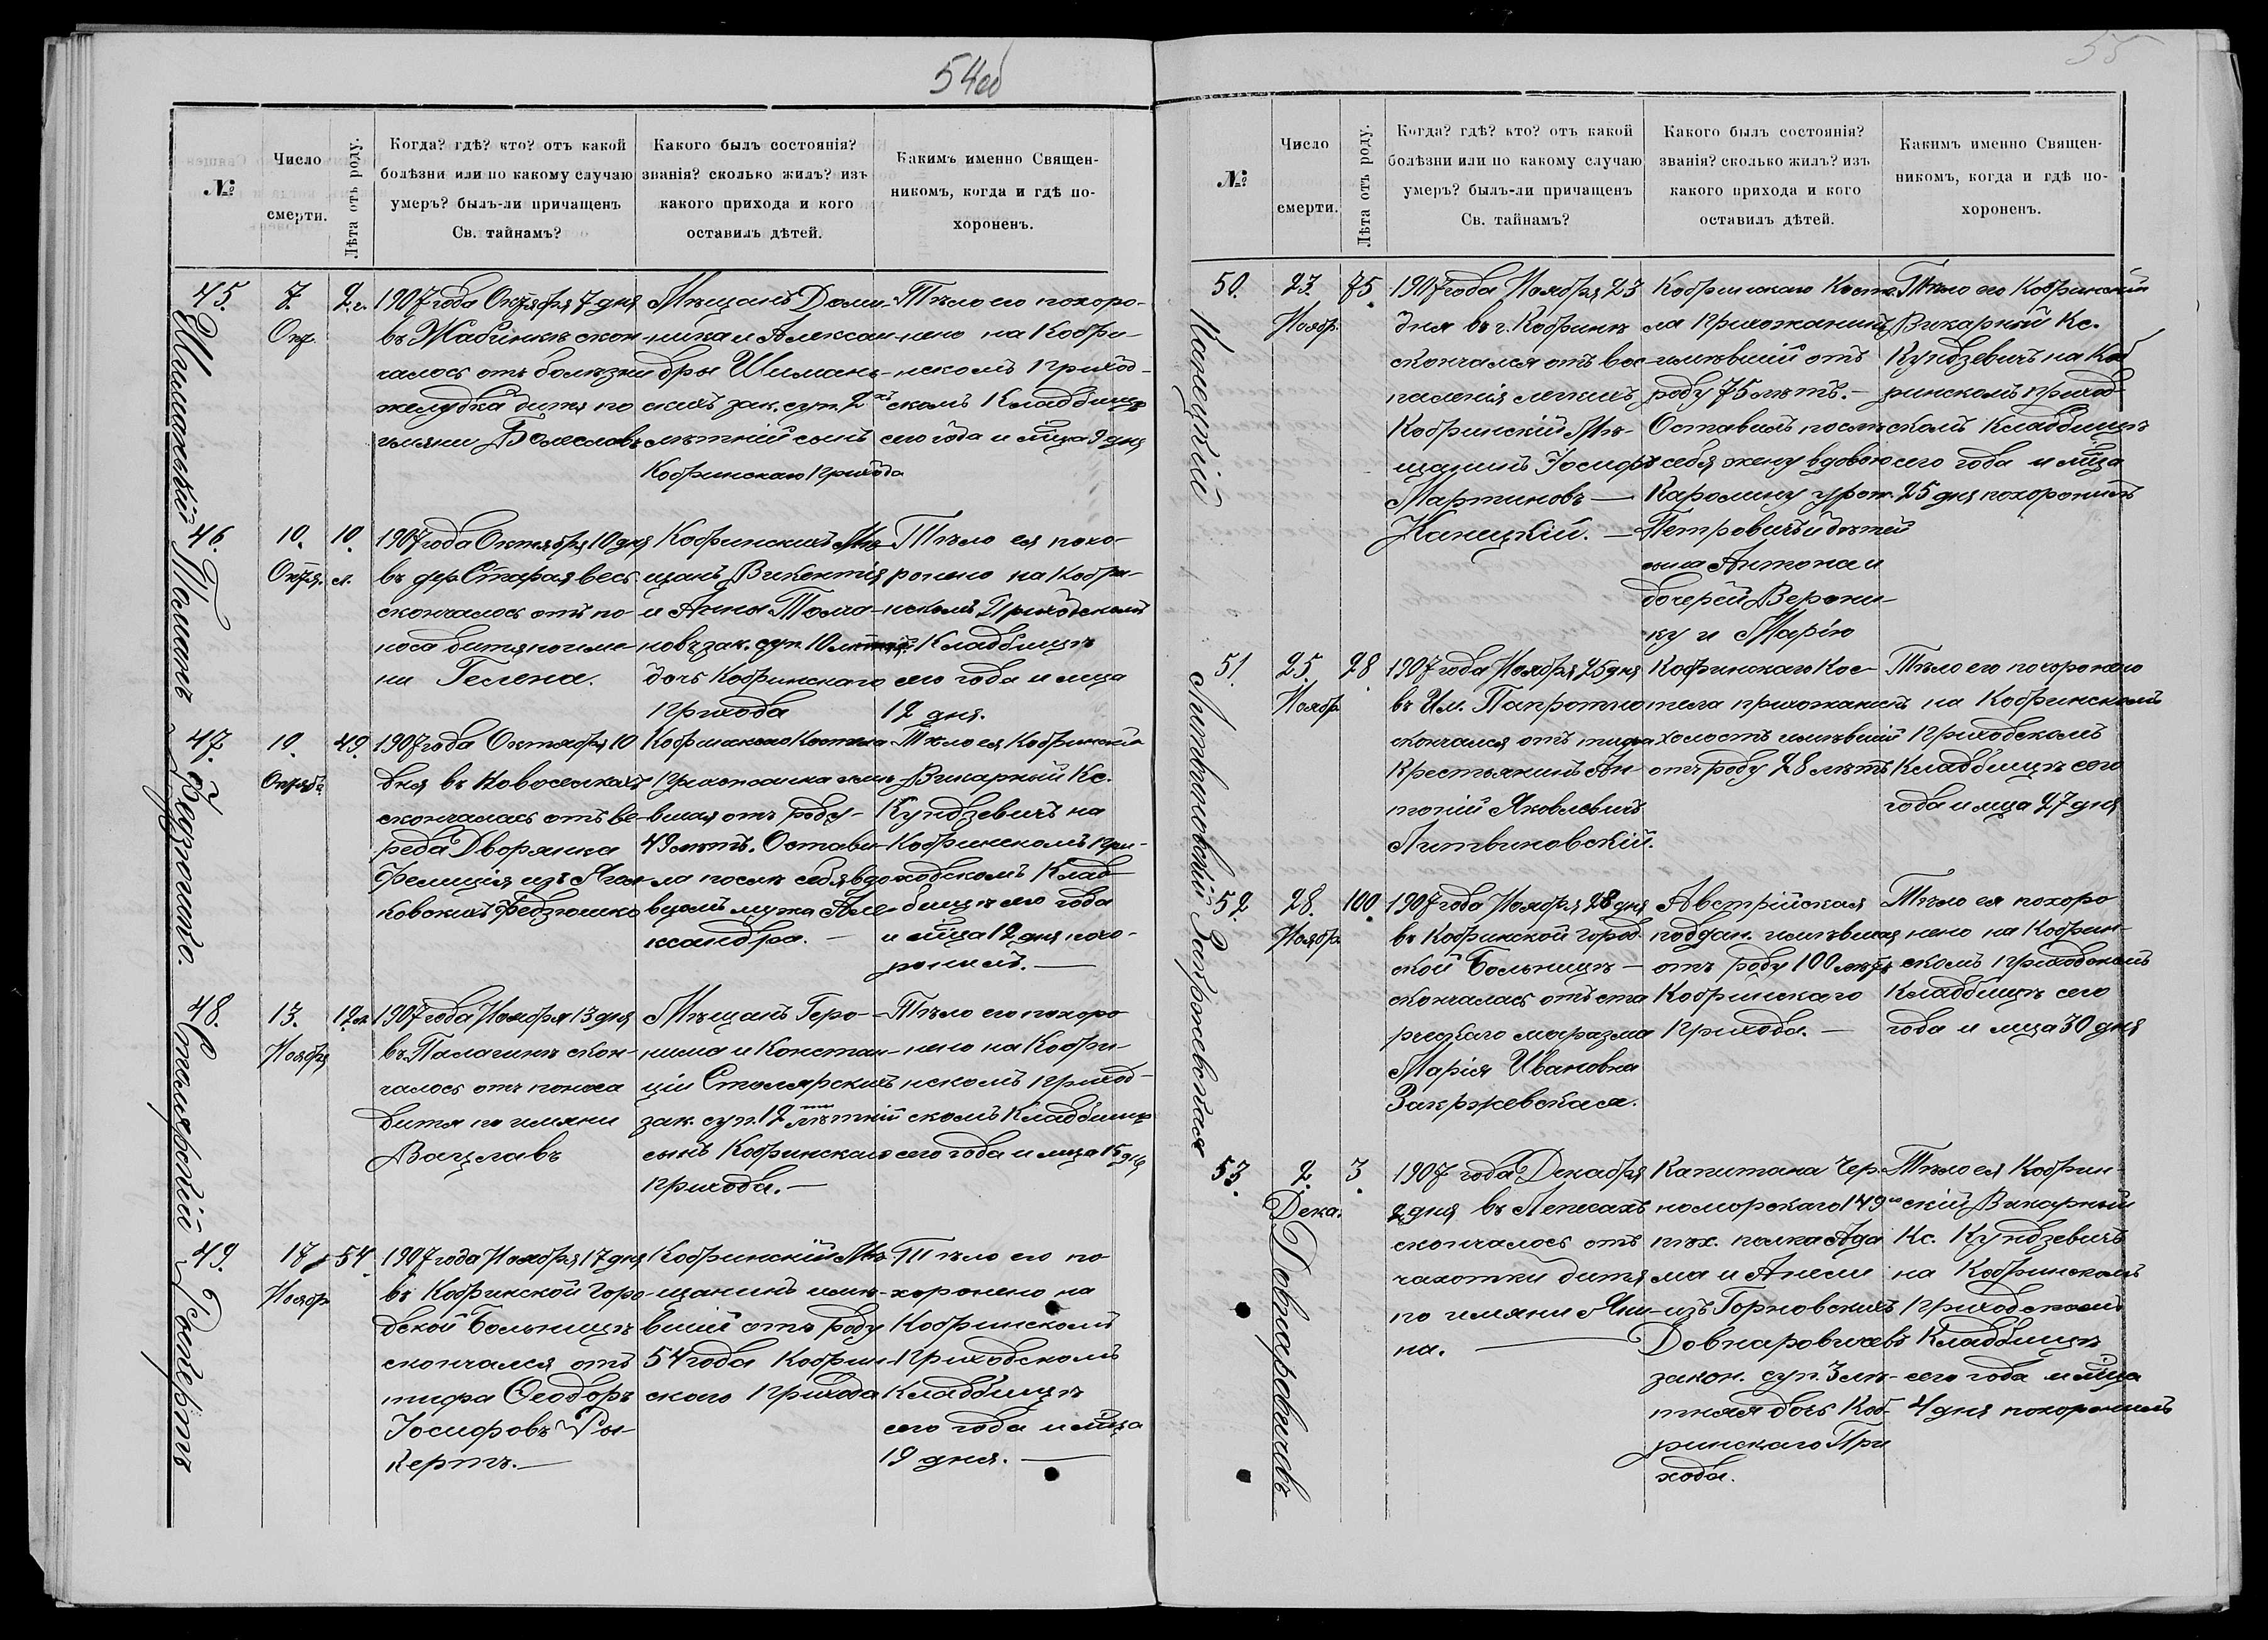 54об
№
Число
смерти.
Лѣта отъ роду.
Когда? гдѣ? кто? отъ какой
болѣзни или по какому случаю
умеръ? былъ-ли причащенъ
Св. тайнамъ?
Какого былъ состоянія?
званія? сколько жилъ? изъ
какого прихода и кого
оставилъ дѣтей.
Какимъ именно Священ-
никомъ, когда и гдѣ по-
хороненъ.
45.
Шиманскій
7.
Окт.
2. г.
1907 года Октября 7 дня
въ Жабинкѣ скон-
чалось отъ болѣзни
желудка дитя по
имяни Болеславъ
Мѣщанъ Доми-
ника и Алексан-
дры Шиман-
скихъ зак. суп. 2хъ
лѣтній сынъ
Кобринскаго Прихода
Тѣло его похоро-
нено на Кобри-
нскомъ Приход-
скомъ Кладбищѣ
сего года и мѣсяца 9 дня
46.
Томанъ
10.
Октяб.
10.
л.
1907 года Октября 10 дня
въ дер. Старая весь
скончалось отъ по-
носа дитя по име-
ни Гелена.
Кобринскихъ Мѣ-
щанъ Викентія
и Анны Тома-
новъ зак. суп. 10 лѣтняя
дочь Кобринскаго
Прихода
Тѣло ея похо-
ронено на Кобри-
нскомъ Приходскомъ
Кладбищѣ
сего года и мѣца
12 дня.
47.
Федзюшко.
10.
Октяб.
49.
1907 года Октября 10
дня въ Новоселкахъ
скончалась отъ ве-
реда Дворянка
Фелиція изъ
ковскихъ Федзюшко
Кобринскаго Костела
Прихожанка имѣ-
вшая отъ роду
49 лѣтъ. Остави-
ла послѣ себя вдо-
вцомъ мужа Але-
ксандра. —
Тѣло ея Кобринскій
Викарный Кс.
Кундзевичъ на
Кобринскомъ При-
ходскомъ Клад-
бищѣ сего года
и мѣца 12 дня похо-
ронилъ. —
48.
Столярскій
13.
Ноября
12 л.
1907 года Ноября 13 дня
въ Палагинѣ скон-
чалось отъ поноса
дитя по имяни
Вацлавъ
Мѣщанъ Геро-
нима и Констан-
ціи Столярскихъ
зак. суп. 12 лѣтній
сынъ Кобринскаго
Прихода. —
Тѣло его похоро
нено на Кобри-
нскомъ Приход-
скомъ Кладбищѣ
сего года и мѣца 15 дня
49.
Рыкертъ
17
Ноябр.
54.
1907 года Ноября 17 дня
въ Кобринской Горо-
дской Больницѣ
скончался отъ
тифа Ѳеодоръ
Іосифовъ Ры-
кертъ. —
Кобринскій Мѣ-
щанинъ имѣ-
вшій отъ роду
54 года Кобрин-
скаго Прихода
Тѣло его по
хоронено на
Кобринскомъ
Приходскомъ
Кладбищѣ
сего года и мѣца
19 дня. —
55
№
Число
смерти.
Лѣта отъ роду.
Когда? гдѣ? кто? отъ какой
болѣзни или по какому случаю
умеръ? былъ-ли причащенъ
Св. тайнамъ?
Какого былъ состоянія?
званія? сколько жилъ? изъ
какого прихода и кого
оставилъ дѣтей.
Какимъ именно Священ-
никомъ, когда и гдѣ по-
хороненъ.
50.
Канецкій
23.
Ноябр.
75.
1907 года Ноября 23
дня въ г. Кобринѣ
скончался отъ вос-
паленія легкихъ
Кобринскій Мѣ-
щанинъ Іосифъ
Мартиновъ —
Канецкій. —
Кобринскаго Косте-
ла Прихожанинъ
имѣвшій отъ
роду 75 лѣтъ. —
Оставилъ послѣ
себя жену вдовою
Каролину урож.
Петровичъ и дѣтей
сына Антона и
дочерей Верони-
ку и Марію
Тѣло его Кобринскій
Викарный Кс.
Кундзевичъ на Коб
ринскомъ Приход-
скомъ Кладбищѣ
сего года и мѣца
25 дня похоронилъ
51.
Литвиновскій
25.
Ноябр.
28.
1907 года Ноября 25 дня
въ Им. Папротно
скончался отъ тифа
Крестьянинъ Ан-
тоній Яковлевичъ
Литвиновскій.
Кобринскаго Кос-
тела прихожанинъ
холостъ имѣвшій
отъ роду 28 лѣтъ
Тѣло его похоронено
на Кобринскомъ
Приходскомъ
Кладбищѣ сего
года и мѣца 27 дня
52.
Закржевская
28.
Ноябр.
100.
1907 года Ноября 28 дня
въ Кобринской Город-
ской Больницѣ —
скончалась отъ ста
рческаго маразма
Марія Ивановна
Закржевская.
Австрійская
поддан. имѣвшая
отъ роду 100 лѣтъ
Кобринскаго
Прихода. —
Тѣло ея похоро
нено на Кобрин-
скомъ Приходскомъ
Кладбищѣ сего
года и мѣца 30 дня
53.
Довнаровичъ
2.
Дека.
3.
1907 года Декабря
2 дня въ Лепесахъ
скончалось отъ
чахотки дитя
по имяни Яни-
на. —
Капитана Чер-
номорскаго 149го
пѣх. полка Ада
ма и Анели
изъ Горновскихъ
Довнаровичевъ
закон. суп. 3 лѣ-
тняя дочь Коб-
ринскаго При
хода.
Тѣло ея Кобрин-
скій Викарный
Кс. Кундзевичъ
на Кобринскомъ
Приходскомъ
Кладбищѣ
сего года и мѣца
4 дня похоронилъ